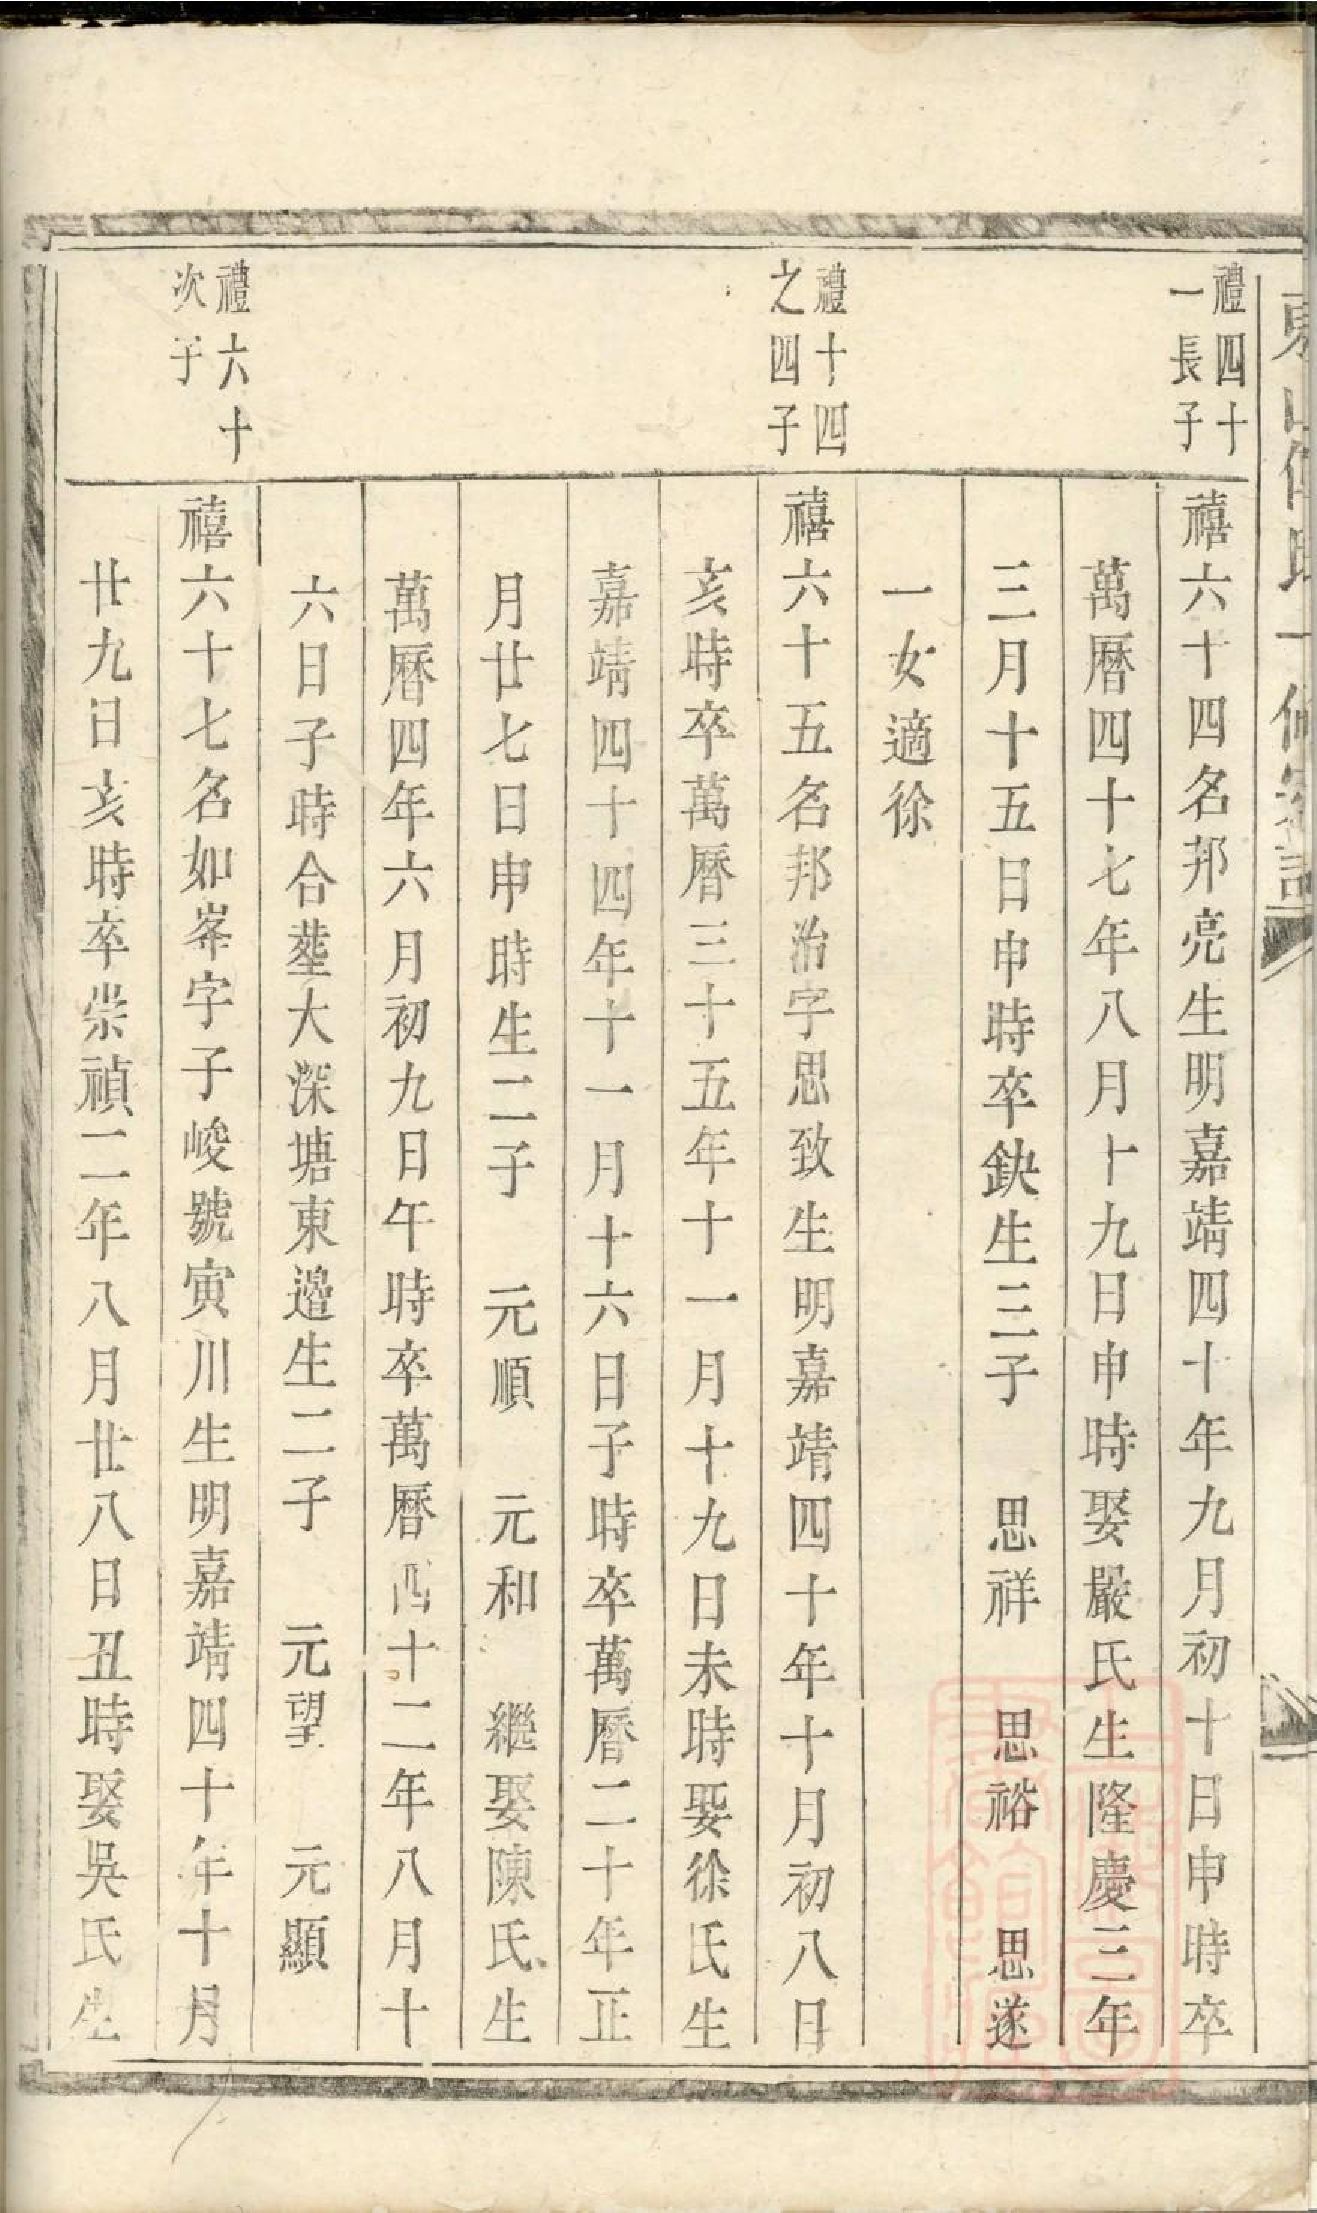 禮四十
一長子
禧六十四名邦亮生明嘉靖四十年九月初十日申時卒
萬曆四十七年八月十九日申時娶嚴氏生隆慶三年
三月十五日申時卒缺生三子 思祥 思裕 思遂
一女適徐
禮十四
之四子
禧六十五名邦治字思致生明嘉靖四十年十月初八日
亥時卒萬曆三十五年十一月十九日未時娶徐氏生
嘉靖四十四年十一月十六日子時卒萬曆二十年正
月廿七日申時生二子 元順 元和 繼娶陳氏生
萬曆四年六月初九日午時卒萬曆四十二年八月十
六日子時合塟大深塘東邉生二子 元望 元顯
禮六十
次子
禧六十七名如峯字子峻號寅川生明嘉靖四十年十月
廿九日亥時卒崇禎二年八月廿八日丑時娶吳氏生